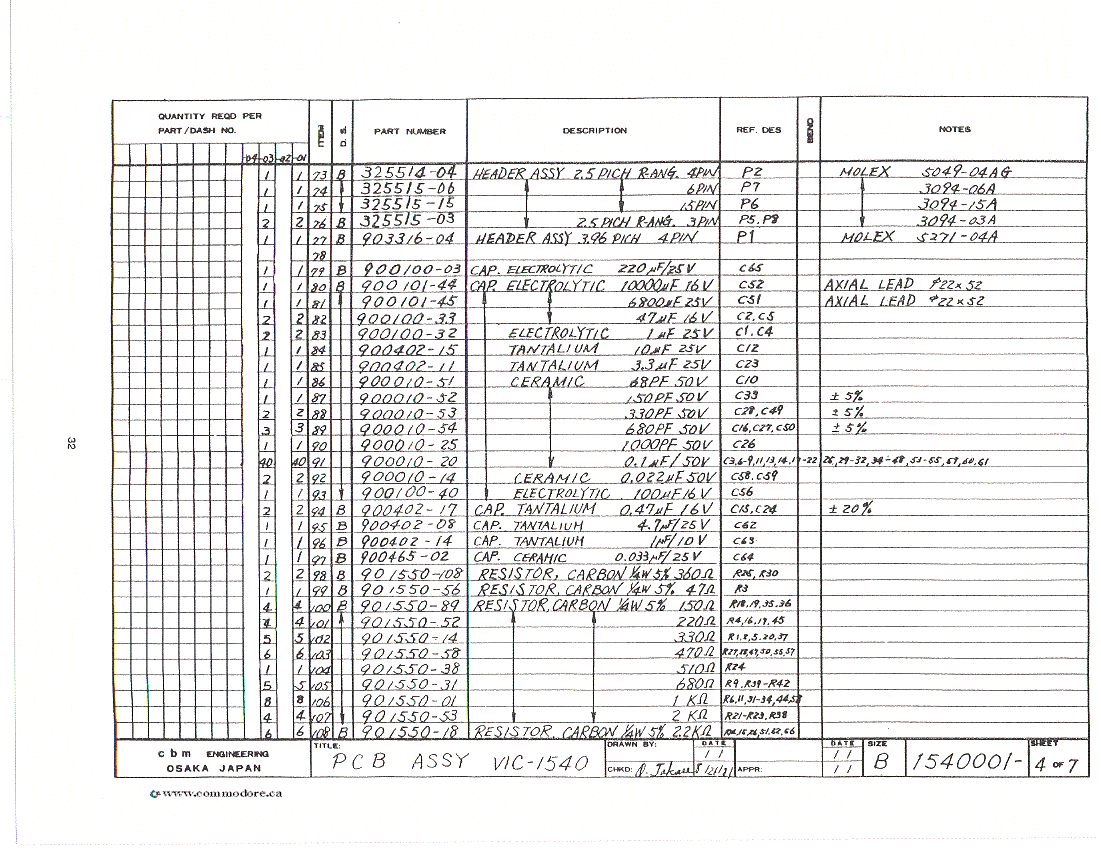 QUANTITY REQD PER
PART/DASH NO. ITEM PART NUMBER DESCRIPTION REF. DES NOTES
-04 -03 -02 -01
1 1 73 B 325514-04 HEADER ASSY 2.5 PICH R-ANG. 4PIN P2 MOLEX 5049-04AG
1 1 74 325515-06 6PIN P7 3094-06A
1 1 75 325515-15 15PIN P6 3094-15A
2 2 76 B 325515-03 2.5 PICH R-ANG. 3PIN P5, P8 3094-03A
1 1 77 B 903316-04 HEADER ASSY 3.96 PICH 4PIN P1 MOLEX 5271-04A
78
1 1 79 B 900100-03 CAP. ELECTROLYTIC 220µF/25V C65
1 1 80 B 900101-44 CAP. ELECTROLYTIC 10000µF 16V C52 AXIAL LEAD φ22×52
1 1 81 900101-45 6800µF 25V C51 AXIAL LEAD φ22×52
2 2 82 900100-33 47µF 16V C2, C5
2 2 83 900100-32 ELECTROLYTIC 1µF 25V C1, C4
1 1 84 900402-15 TANTALIUM 10µF 25V C12
1 1 85 900402-11 TANTALIUM 3.3µF 25V C23
1 1 86 900010-51 CERAMIC 68PF 50V C10
1 1 87 900010-52 150PF 50V C33 ±5%
2 2 88 900010-53 330PF 50V C28, C49 ±5%
3 3 89 900010-54 680PF 50V C16, C27, C50 ±5%
1 1 90 900010-25 1000PF 50V C26
40 40 91 900010-20 0.1µF/50V C3,6-9,11,13,14,17-22 25,29-32,34-48,53-55,57,60,61
2 2 92 900010-14 CERAMIC 0.022µF 50V C58, C59
1 1 93 900100-40 ELECTROLYTIC 100µF 16V C56
2 2 94 B 900402-17 CAP. TANTALIUM 0.47µF 16V C15, C24 ±20%
1 1 95 B 900402-08 CAP. TANTALIUM 4.7µF/25V C62
1 1 96 B 900402-14 CAP. TANTALIUM 1µF/10V C63
1 1 97 B 900465-02 CAP. CERAMIC 0.033µF/25V C64
2 2 98 B 901550-108 RESISTOR, CARBON 1/4W 5% 360Ω R25, R30
1 1 99 B 901550-56 RESISTOR, CARBON 1/4W 5% 47Ω R3
4 4 100 B 901550-89 RESISTOR, CARBON 1/4W 5% 150Ω R18,19,35,36
4 4 101 901550-52 220Ω R4,16,17,45
5 5 102 901550-14 330Ω R1,2,5,20,37
6 6 103 901550-58 470Ω
1 1 104 901550-38 510Ω R24
5 5 105 901550-31 680Ω R9, R39-R42
8 8 106 901550-01 1 KΩ R6,11,31-34,44,58
4 4 107 901550-53 2 KΩ R21-R23, R38
6 6 108 B 901550-18 RESISTOR, CARBON 1/4W 5% 2.2KΩ
cbm ENGINEERING
OSAKA JAPAN
TITLE: PCB ASSY VIC-1540
DRAWN BY: DATE
CHKD: APPR:
DATE SIZE B 1540001- SHEET 4 OF 7
32
©www.commodore.ca